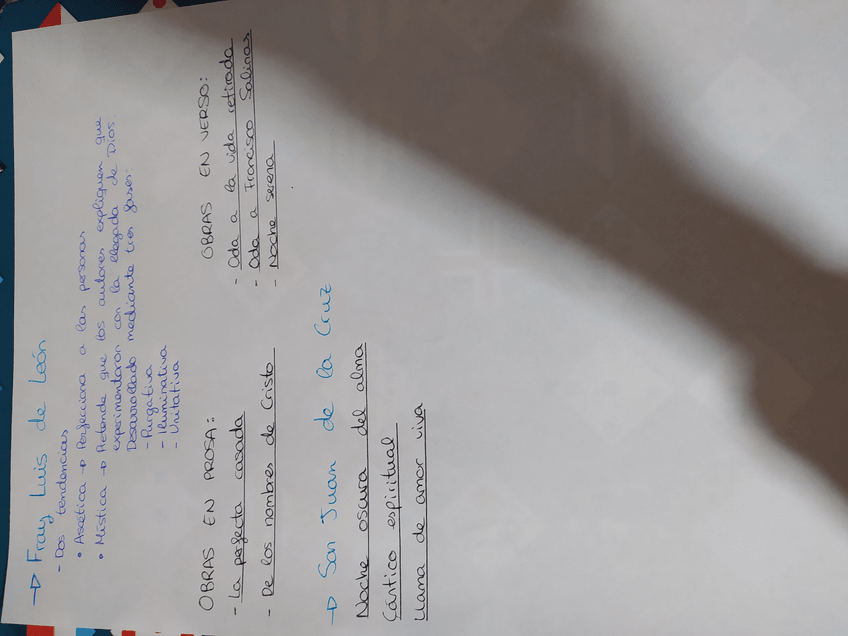 → Fray Luis de León
- Dos tendencias
• Ascética → Perfecciona a las personas
• Mística → Pretende que los autores expliquen que
experimentaron con la llegada de Dios.
Desarrollado mediante tres fases:
- Purgativa
- Iluminativa
- Unitativa
OBRAS EN PROSA:
- La perfecta casada
- De los nombres de Cristo
OBRAS EN VERSO:
- Oda a la vida retirada
- Oda a Francisco Salinas
- Noche serena
→ San Juan de la Cruz
Noche oscura del alma
Cántico espiritual
Llama de amor viva